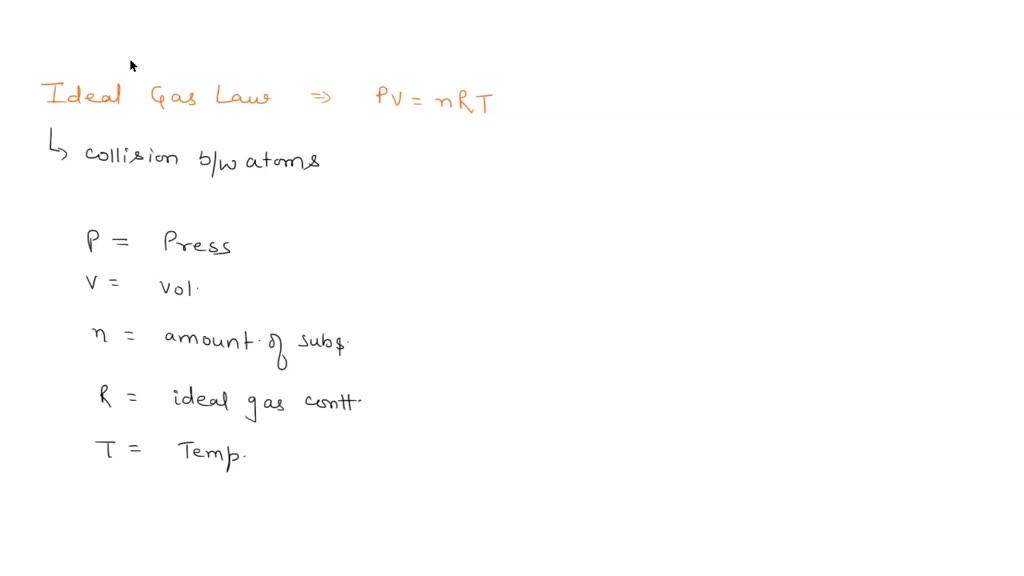 Ideal Gas Law ⇒ PV = nRT
↳ collision b/w atoms
P = Press
V = Vol.
n = amount. of subs.
R = ideal gas constt.
T = Temp.